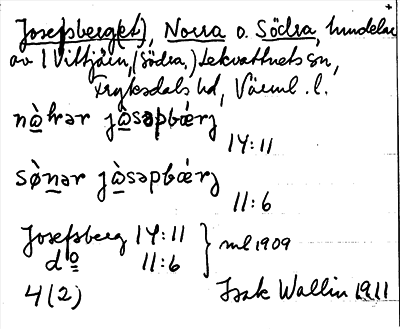 Josefsberg(et), Norra o. Södra, hmdelar
av 1 Vittjärn, (södra,) Lekvattnets sn,
Fryksdals hd, Värml. l.
nò̱hrər jò̱səpbǽrj
14:11
sø̀nər jò̱səpbǽrj
11:6
Josefsberg 14:11
do 11:6 } ml 1909
4 (2) Isak Wallin 1911